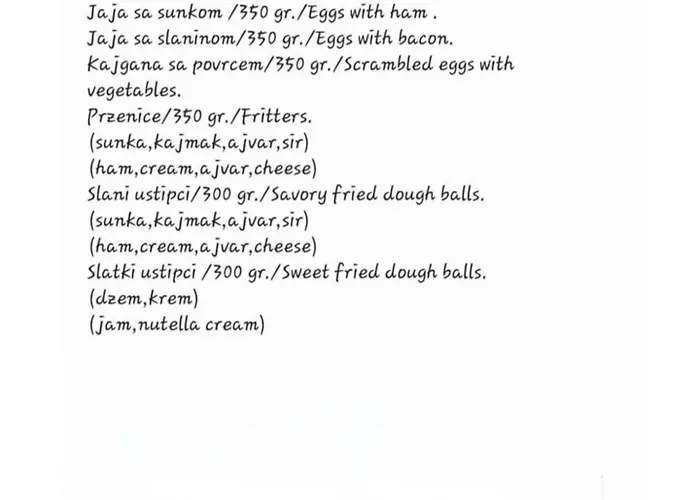 Jaja sa sunkom /350 gr./Eggs with ham .
Jaja sa slaninom/350 gr./Eggs with bacon.
Kajgana sa povrcem/350 gr./Scrambled eggs with
vegetables.
Przenice/350 gr./Fritters.
(sunka,kajmak,ajvar,sir)
(ham,cream,ajvar,cheese)
Slani ustipci/300 gr./Savory fried dough balls.
(sunka,kajmak,ajvar,sir)
(ham,cream,ajvar,cheese)
Slatki ustipci /300 gr./Sweet fried dough balls.
(dzem,krem)
(jam,nutella cream)